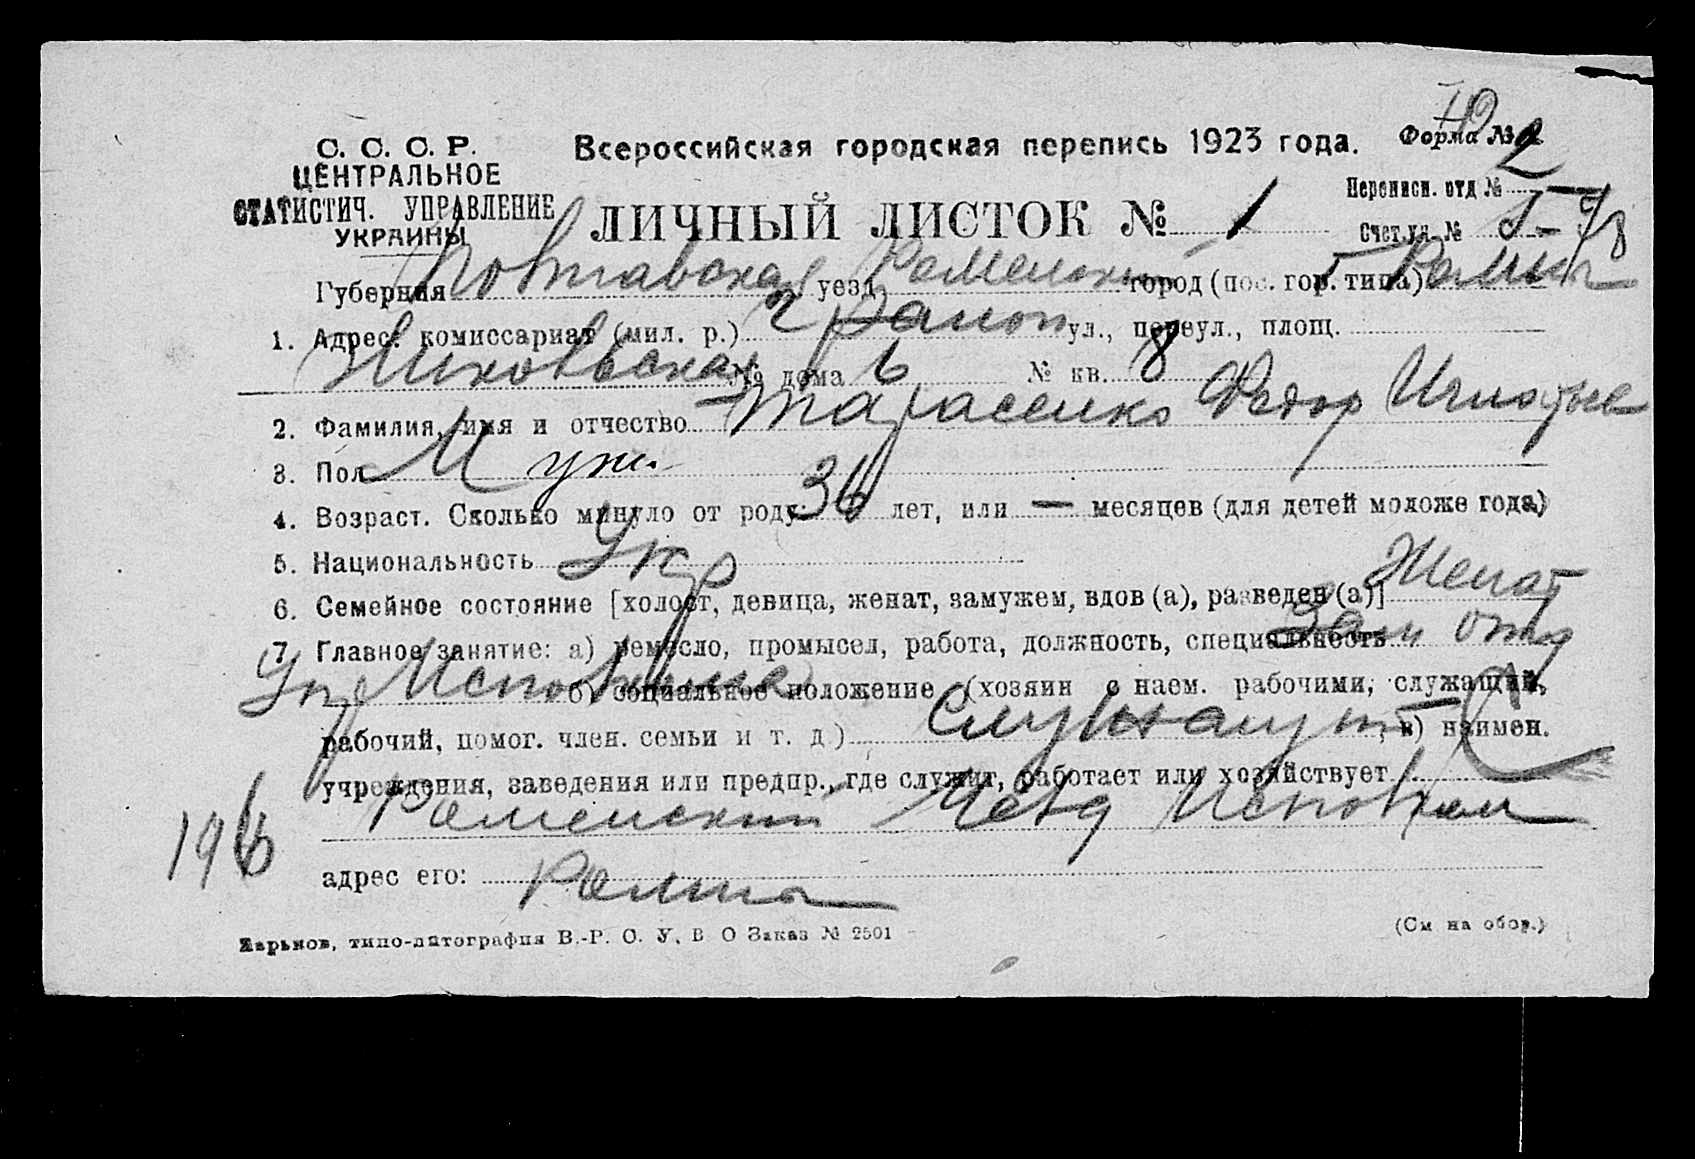 С. С. С. Р.
ЦЕНТРАЛЬНОЕ
СТАТИСТИЧ. УПРАВЛЕНИЕ
УКРАИНЫ
Всероссийская городская перепись 1923 года.
Форма № 2
ЛИЧНЫЙ ЛИСТОК № 1
Переписн. отд №
Счет. уч. №
Губерния Полтавская уезд Роменский город (пос. гор. типа) Ромны
1. Адрес: комиссариат (мил. р.) 2 район ул., переул., площ.
№ дома 6 № кв. 8
2. Фамилия, имя и отчество Тарасенко Федор Игнатьев
3. Пол Муж.
4. Возраст. Сколько минуло от роду: 36 лет, или — месяцев (для детей моложе года)
5. Национальность Укр
6. Семейное состояние [холост, девица, женат, замужем, вдов (а), разведен (а)] Женат
7. Главное занятие: а) ремесло, промысел, работа, должность, специальность Зав отд
Упр б) социальное положение (хозяин с наем. рабочими, служащий,
рабочий, помог. член. семьи и т. д) Служащий, в) наимен.
учреждения, заведения или предпр., где служит, работает или хозяйствует
Роменский Исполком
196
адрес его: Ромны
Харьков, типо-литография В.-Р. О. У. В О Заказ № 2501
(См на обор.)